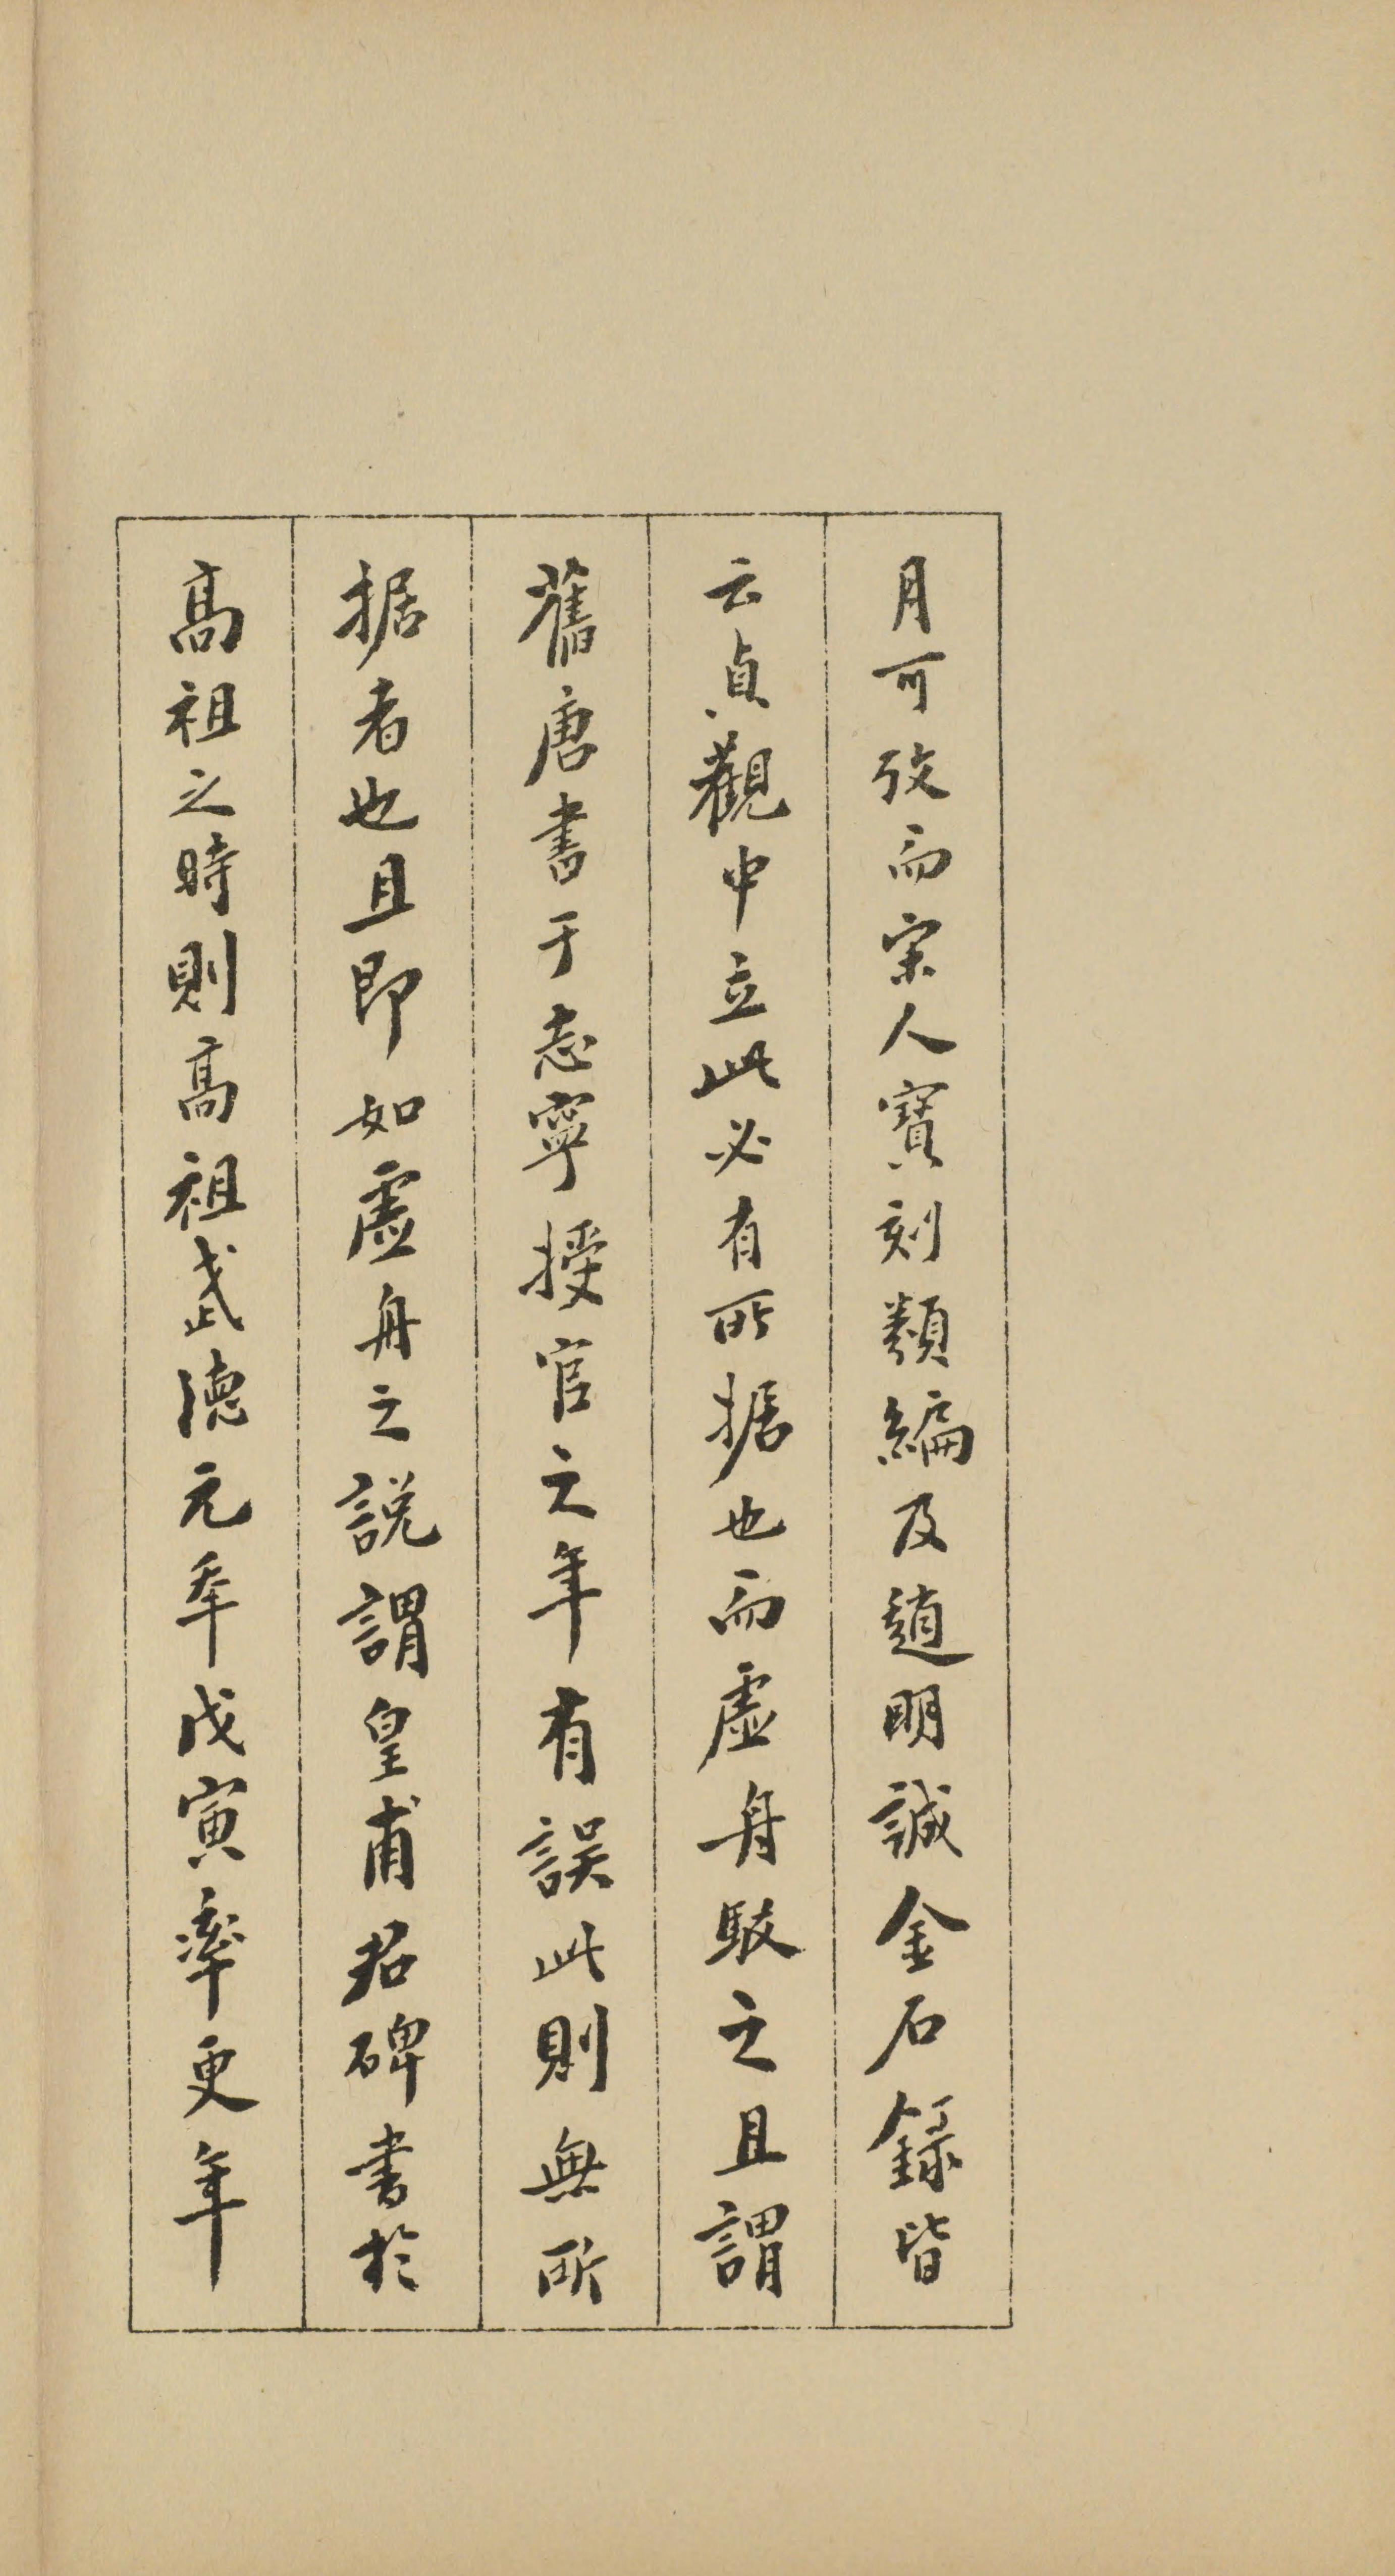 月可攷而宋人寶刻類編及趙明誠金石錄皆
云貞觀中立此必有所据也而虛舟駁之且謂
舊唐書于志寧授官之年有誤此則無所
据者也且即如虛舟之說謂皇甫君碑書於
高祖之時則高祖武德元年戊寅率更年